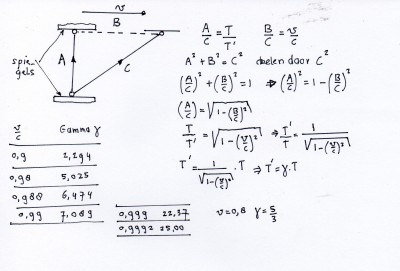 v
B
A
C
spie_
gels
A/C = T/T' B/C = v/c
A² + B² = C² delen door C²
(A/C)² + (B/C)² = 1 ⇒ (A/C)² = 1 - (B/C)²
(A/C) = √1-(B/C)²
T/T' = √1-(v/c)² ⇒ T'/T = 1/√1-(v/c)²
T' = 1/√1-(v/c)² . T ⇒ T' = γ.T
v/c Gamma γ
0,9 2,294
0,98 5,025
0,988 6,474
0,99 7,089
0,999 22,37
0,9992 25,00
v=0,8 γ=5/3